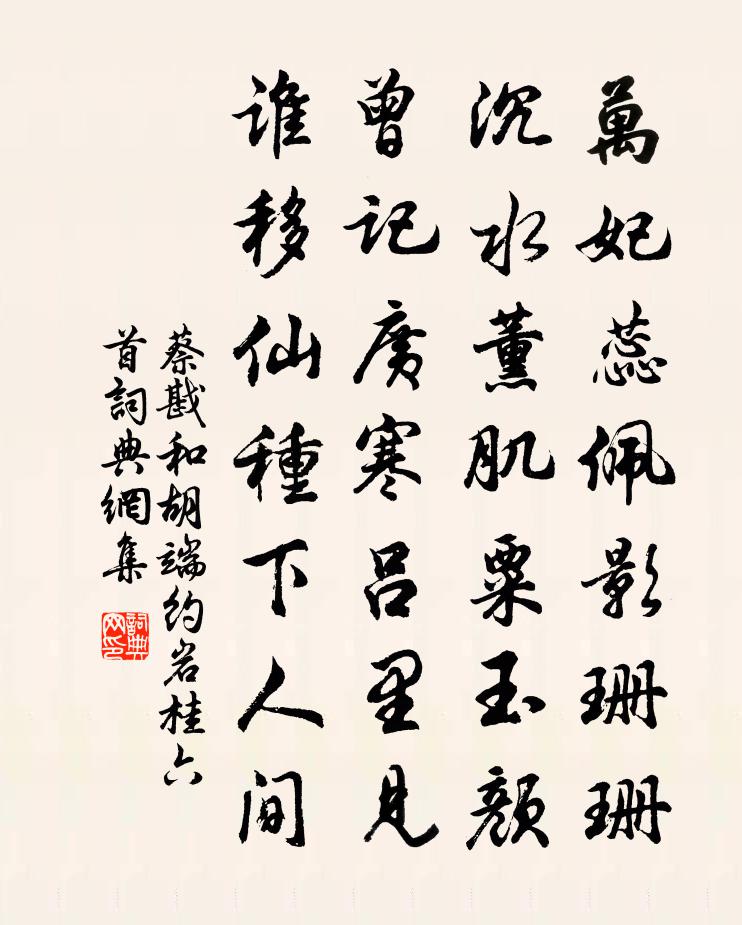 萬妃蕊佩影珊珊
沉水薰肌粟玉顏
曾記廣寒呂里見
誰移仙種下人間
蔡戡和胡端約岩桂六
首詞典網集
詞典
网印